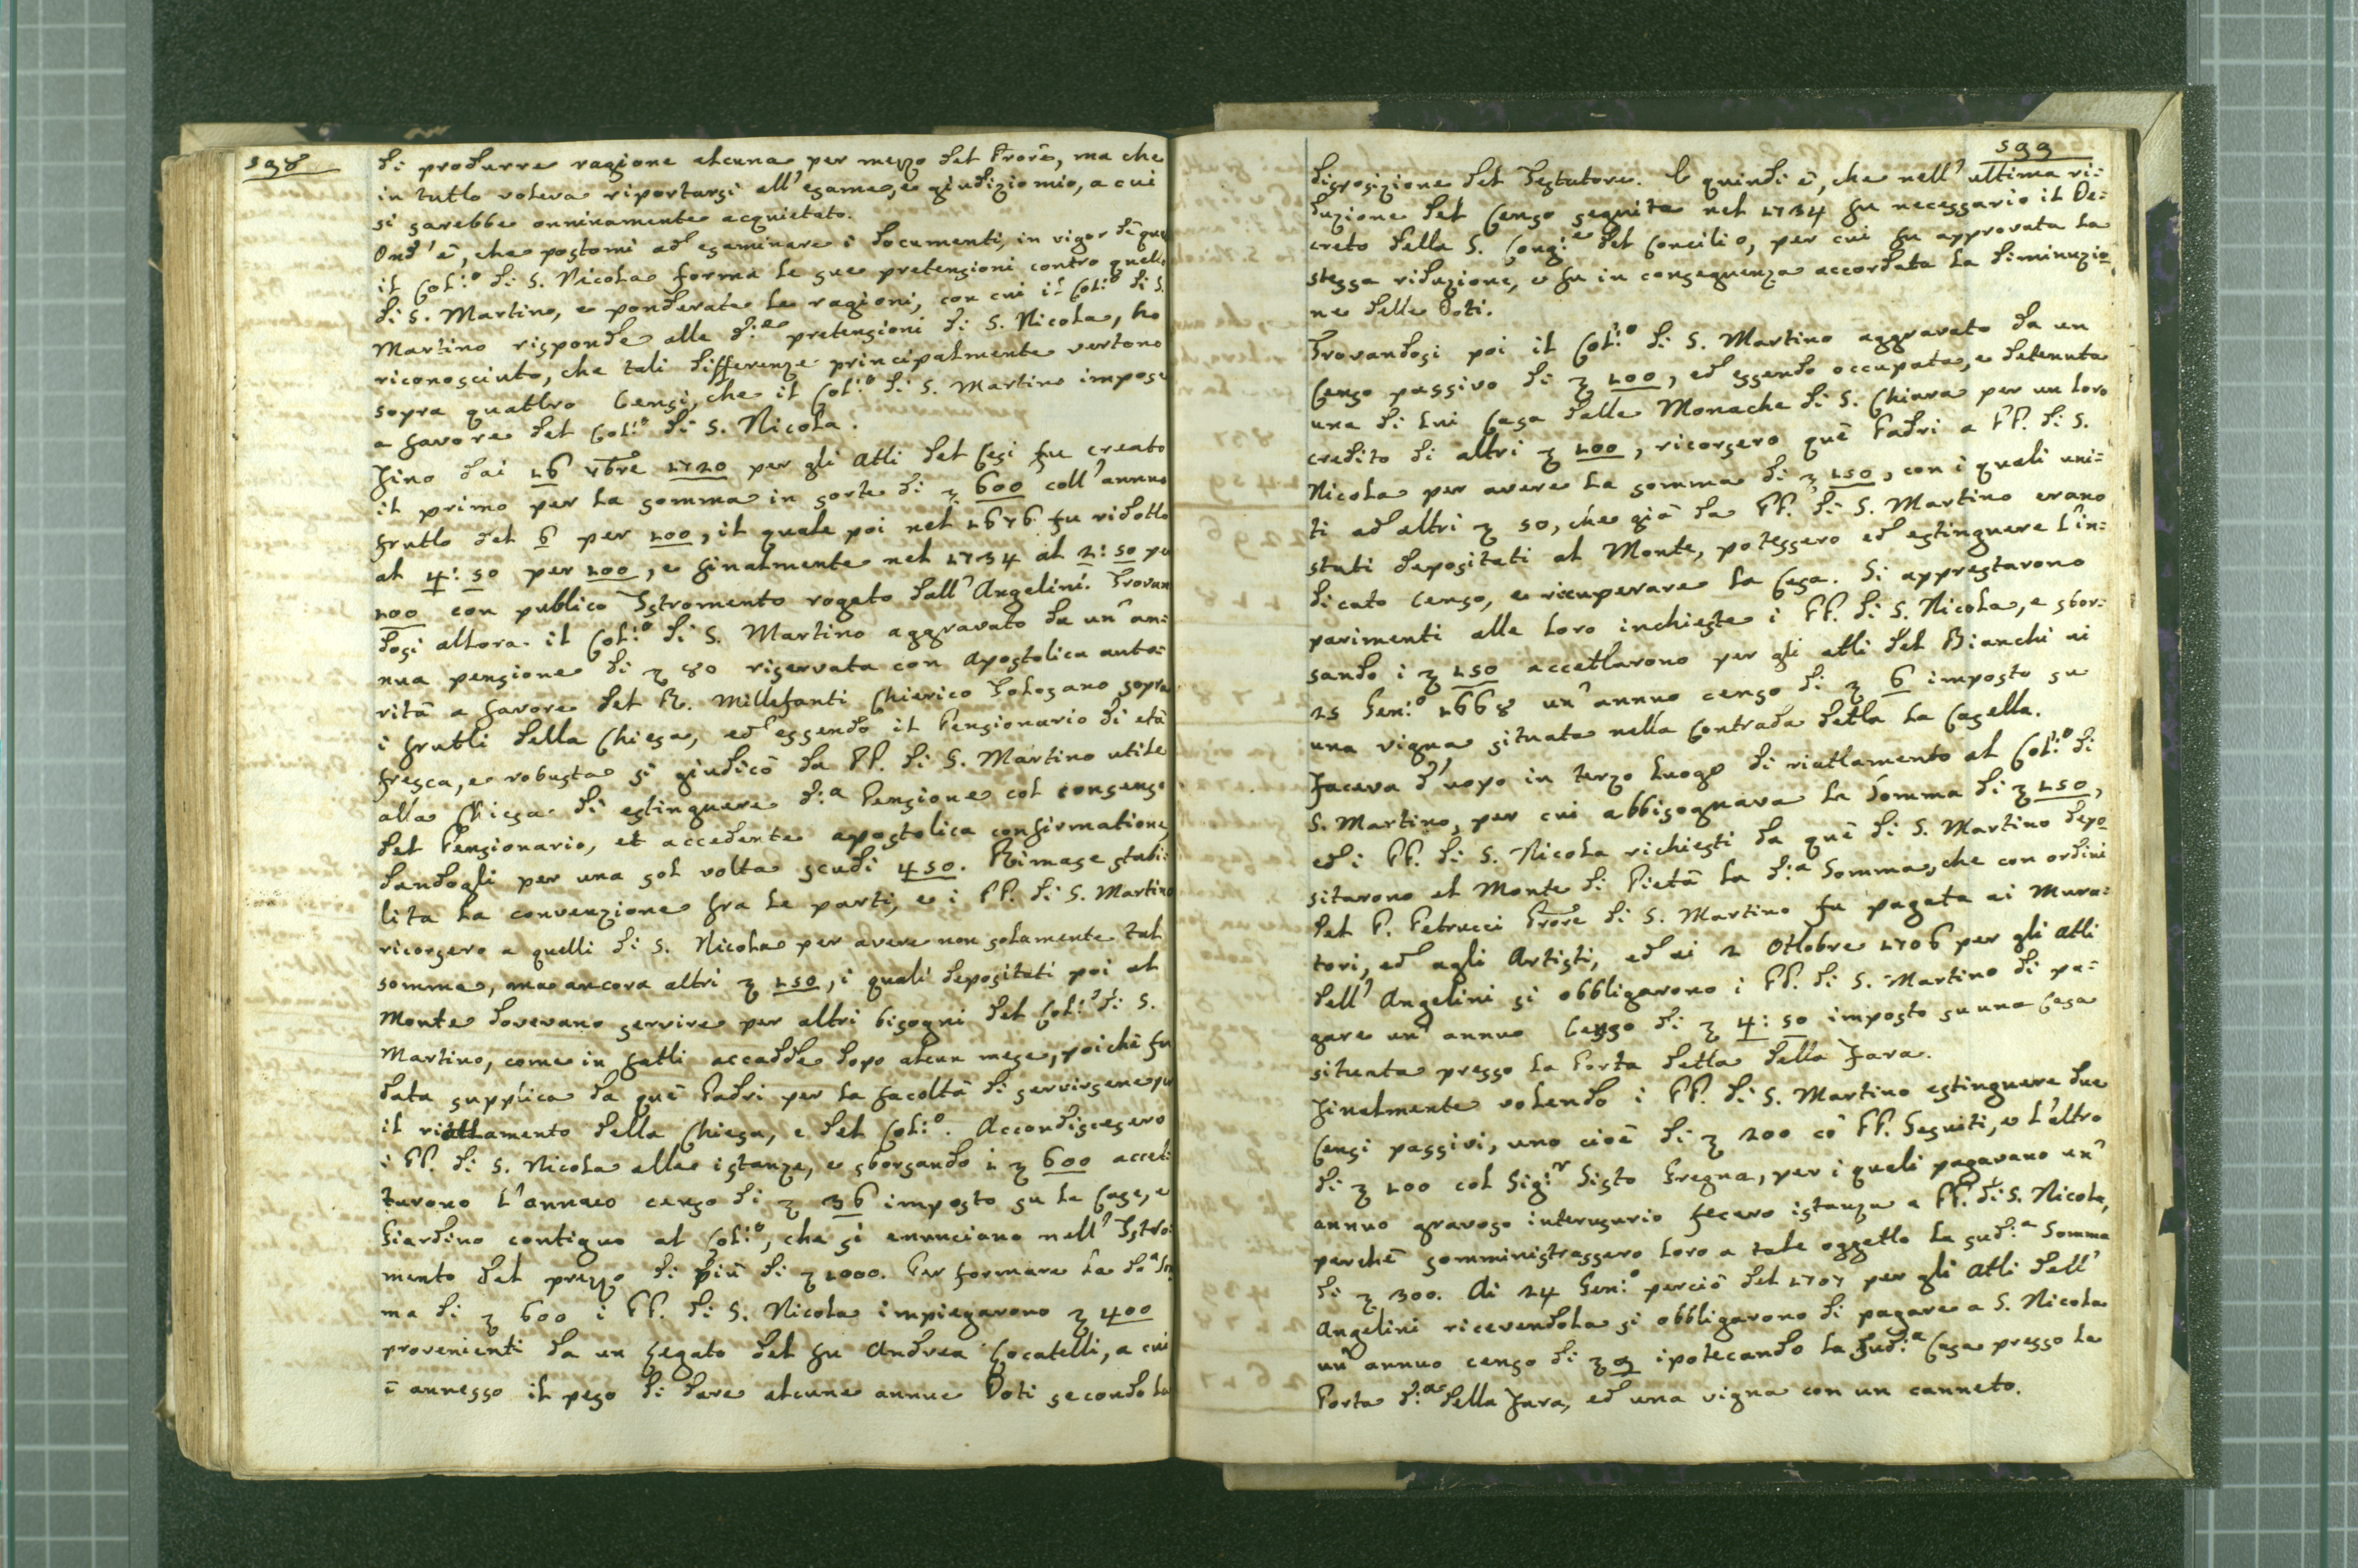 598
di produrre ragione alcuna per mezzo del Prōre, ma che
in tutto voleva riportarsi all'esame, e giudizio mio, a cui
si sarebbe onninamente acquietato.
Ond'è, che postomi ad esaminare i documenti, in vigor dè que
il Col:º di S. Nicola forma le sue pretensioni contro quello
di S. Martino, e ponderate le ragioni, con cui il Col:º di S.
Martino risponde alle d:e pretensioni di S. Nicola, ho
riconosciuto, che tali differenze principalmente vertono
sopra quattro Censi, che il Col:º di S. Martino impose
a favore del Col:º di S. Nicola.
Fino dai 16 Xbre 1720 per gli Atti del Cesi fu creato
il primo per la somma in sorte di ʒ 600 coll'annuo
frutto del 6 per 100, il quale poi nel 1676 fu ridotto
al 4:50 per 100, e finalmente nel 1734 al 2:50 per
100 con publico Istromento rogato dall'Angelini. Trovan
dosi allora il Col:º di S. Martino aggravato da un'an:
nua pensione di ʒ 80 riservata con Apostolica auto:
rità a favore del R. Millefanti Chierico Tolosano sopra
i frutti della Chiesa, ed essendo il Pensionario di età
fresca, e robusta si giudicò da PP. di S. Martino utile
alla Chiesa di estinguere d:a Pensione col consenso
del Pensionario, et accedente apostolica confirmatione
dandogli per una sol volta scudi 450. Rimase stabi:
lita la convenzione fra le parti, e i PP. di S. Martino
ricorsero a quelli di S. Nicola per avere non solamente tal
somma, ma ancora altri ʒ 150, i quali depositati poi al
Monte dovevano servire per altri bisogni del Col:º di S.
Martino, come in fatti accadde dopo alcun mese, poichè fu
data supplica da què Padri per la facoltà di servirsene per
il riattamento della Chiesa, e del Col:º. Accondiscesero
i PP. di S. Nicola alle istanze, e sborsando i ʒ 600 accet:
tarono l'annuo censo di ʒ 36 imposto su le Case, e
Giardino contiguo al Col:º, che si enunciano nell'Istro:
mento del prezzo di più di ʒ 1000. Per formare la d:a Som
ma di ʒ 600 i PP. di S. Nicola impiegarono ʒ 400
provenienti da un Legato del fu Andrea Locatelli, a cui
è annesso il peso di dare alcune annue Doti secondo la
599
disposizione del Testatore. E quindi è, che nell'ultima ri:
duzione del Censo seguita nel 1734 fu necessario il De:
creto della S. Congr:e del Concilio, per cui fu approvata la
stessa riduzione, e fu in conseguenza accordata la diminuzio
ne delle Doti.
Trovandosi poi il Col:º di S. Martino aggravato da un
Censo passivo di ʒ 100, ed essendo occupata, e detenuta
una di lui Casa dalle Monache di S. Chiara per un loro
credito di altri ʒ 100, ricorsero què Padri a PP. di S.
Nicola per avere la somma di ʒ 150, con i quali uni:
ti ad altri ʒ 50, che già da PP. di S. Martino erano
stati depositati al Monte, potessero ed estinguere l'in:
dicato Censo, e ricuperare la Casa. Si apprestarono
parimenti alle loro inchieste i PP. di S. Nicola, e sbor:
sando i ʒ 150 accettarono per gli atti del Bianchi ai
25 Gen:º 1668 un'annuo censo di ʒ 6 imposto su
una vigna situata nella Contrada detta la Casella.
Faceva d'uopo in terzo luogo di riattamento al Col:º di
S. Martino, per cui abbisognava la Somma di ʒ 150,
ed i PP. di S. Nicola richiesti da què di S. Martino depo
sitarono al Monte di Pietà la d:a Somma, che con ordini
del P. Petrucci Prōre di S. Martino fu pagata ai Mura:
tori, ed agli Artisti, ed ai 2 Ottobre 1706 per gli Atti
dell'Angelini si obbligarono i PP. di S. Martino di pa:
gare un'annuo Censo di ʒ 4:50 imposto su una Casa
situata presso la Porta detta della Fara.
Finalmente volendo i PP. di S. Martino estinguere due
Censi passivi, uno cioè di ʒ 200 cò PP. Gesuiti, e l'altro
di ʒ 100 col Sig:r Sisto Gregna, per i quali pagavano un'
annuo gravoso interusurio fecero istanza a PP. di S. Nicola,
perchè somministrassero loro a tale oggetto la sud:a Somma
di ʒ 300. Ai 24 Gen:º perciò del 1707 per gli Atti dell'
Angelini ricevendola si obbligarono di pagare a S. Nicola
un'annuo censo di ʒ 9 ipotecando la sud:a Casa presso la
Porta d:a della Fara, ed una vigna con un canneto.